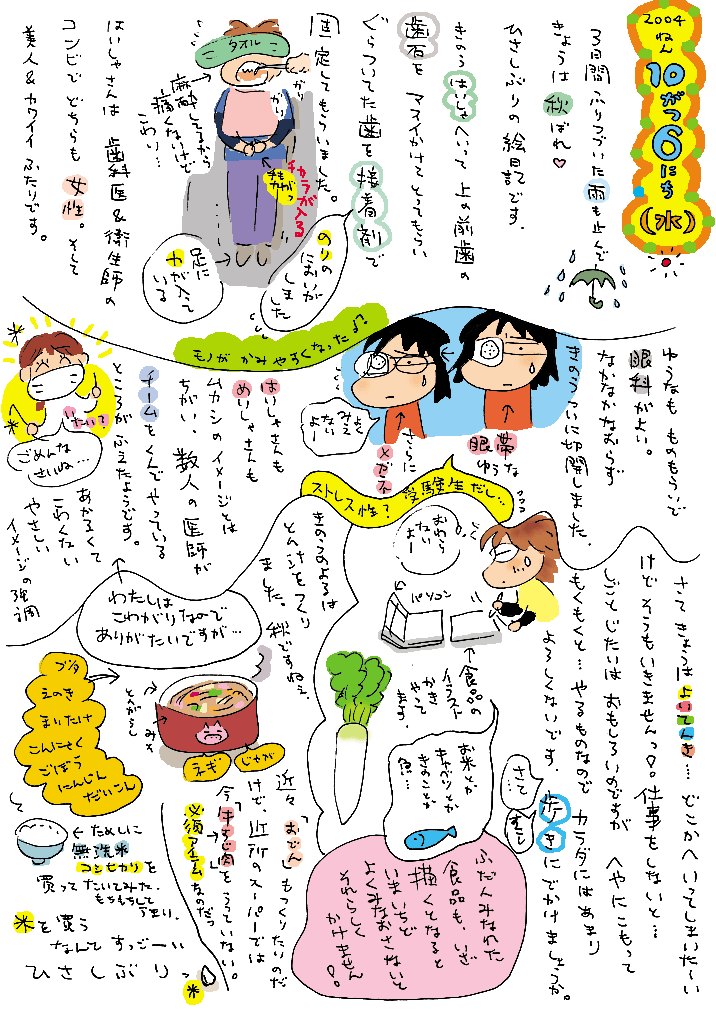 2004
ねん
10
がつ
6
にち
(水)
3日間 ふりつづいた 雨も止んで
きょうは 秋ばれ♡
ひさしぶりの 絵日記です。
きのう はいしゃへいって 上の前歯の
歯石を マスイかけて とってもらい
ぐらついてた歯を 接着剤で
固定してもらいました。
のりの
においが
しました
タオル
かり
かり
麻酔してるから
痛くないけど
こわい…
チカラが入る
足に
力が入って
いる
はいしゃさんは 歯科医&衛生師の
コンビで どちらも 女性。そして
美人&カワイイ ふたりです。
モノが かみやすくなったよ♪
ゆうなも ものもらいで
眼科がよい。
なかなかなおらず
きのうついに切開しました。
眼帯
ゆうな
さらに
メガネ
よく
みえ
ないー
ストレス性? 受験生だし…
はいしゃさんも
めいしゃさんも
ムカシのイメージとは
ちがい、数人の医師が
チームをくんでやっている
ところがふえたようです。
いたいで
ごめんな
さいね…
あかるくて
こわくない
やさしい
イメージの強調
わたしは
こわがりなので
ありがたいですが…
さて きょうは よいてんき… どこかへいってしまいた〜い
けど そうもいきませんっ。仕事をしないと…
しごとじたいは おもしろいのですが へやにこもって
もくもくと… やるものなので カラダにはあまり
よろしくないです。歩きにでかけましょうか。
さて…
おわら
ないよー
パソコン
食品の
イラスト
かき
やって
ます。
お米とか
キャベツとか
きのことか
魚…
ふだんみなれた
食品も、いざ
描くとなると
いまいちど
よくみなおさないと
それらしく
かけません
きのうのよるは
とんじるをつくり
ました。秋ですねえ
とんがらし
みそ
ブタ
えのき
まいたけ
こんにゃく
ごぼう
にんじん
だいこん
ネギ
じゃが
近々「おでん」もつくりたいのだ
けど、近所のスーパーでは
今「牛すじ肉」をうっていない。
必須アイテムなのだっ
←ためしに
無洗米
コシヒカリを
買って たいてみた。
もちもちして
うまい。
米を買う
なんて すっごーい
ひさしぶりっ
米